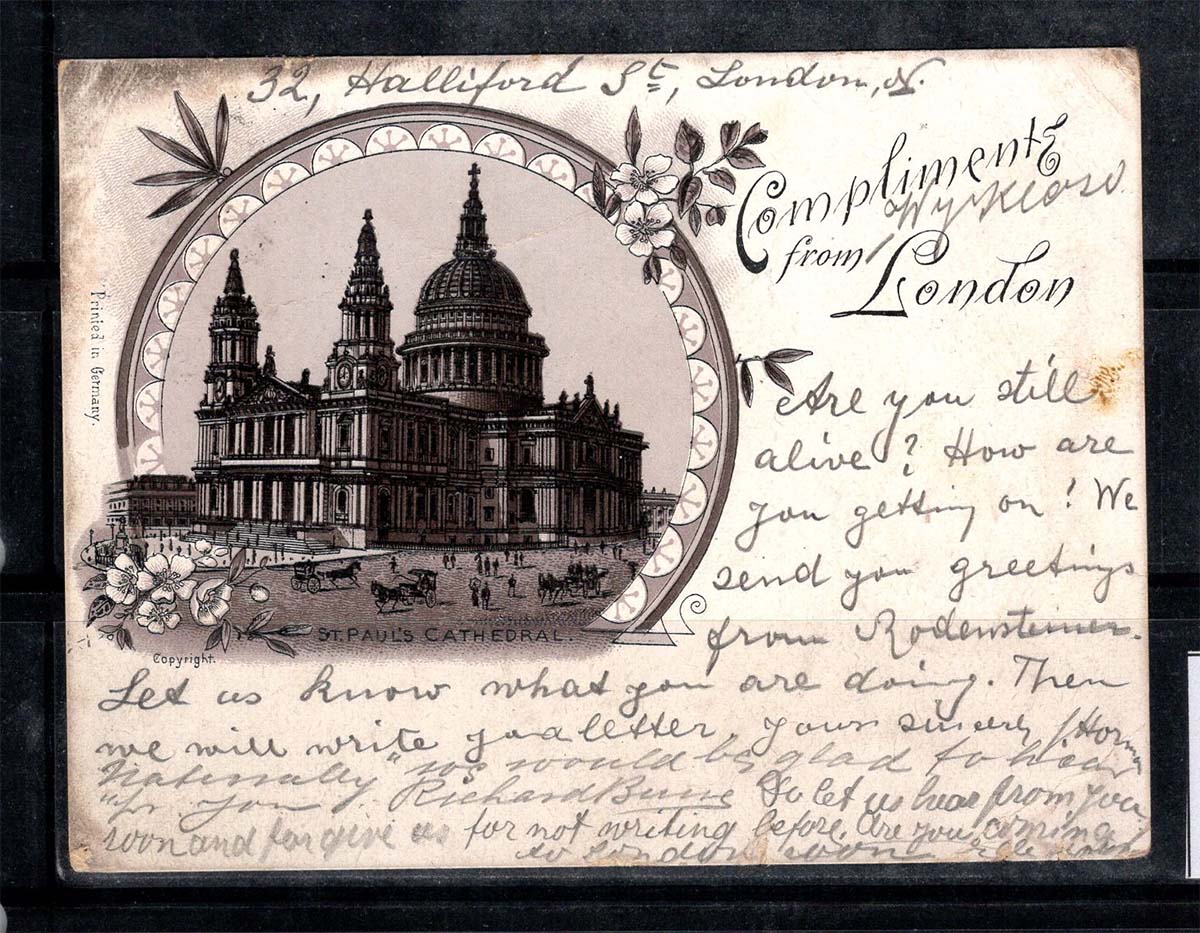 32, Halliford St, London, N.
Compliments
from London
Printed in Germany.
Are you still
alive? How are
you getting on! We
send you greetings
from Rodensteiner.
ST. PAUL'S CATHEDRAL.
Copyright.
Let us know what you are doing. Then
we will write you a letter. yours sincerely
Naturally we would be glad to hear
you Richard Do let us hear from you
soon and forgive us for not writing before. Are you coming
to London soon